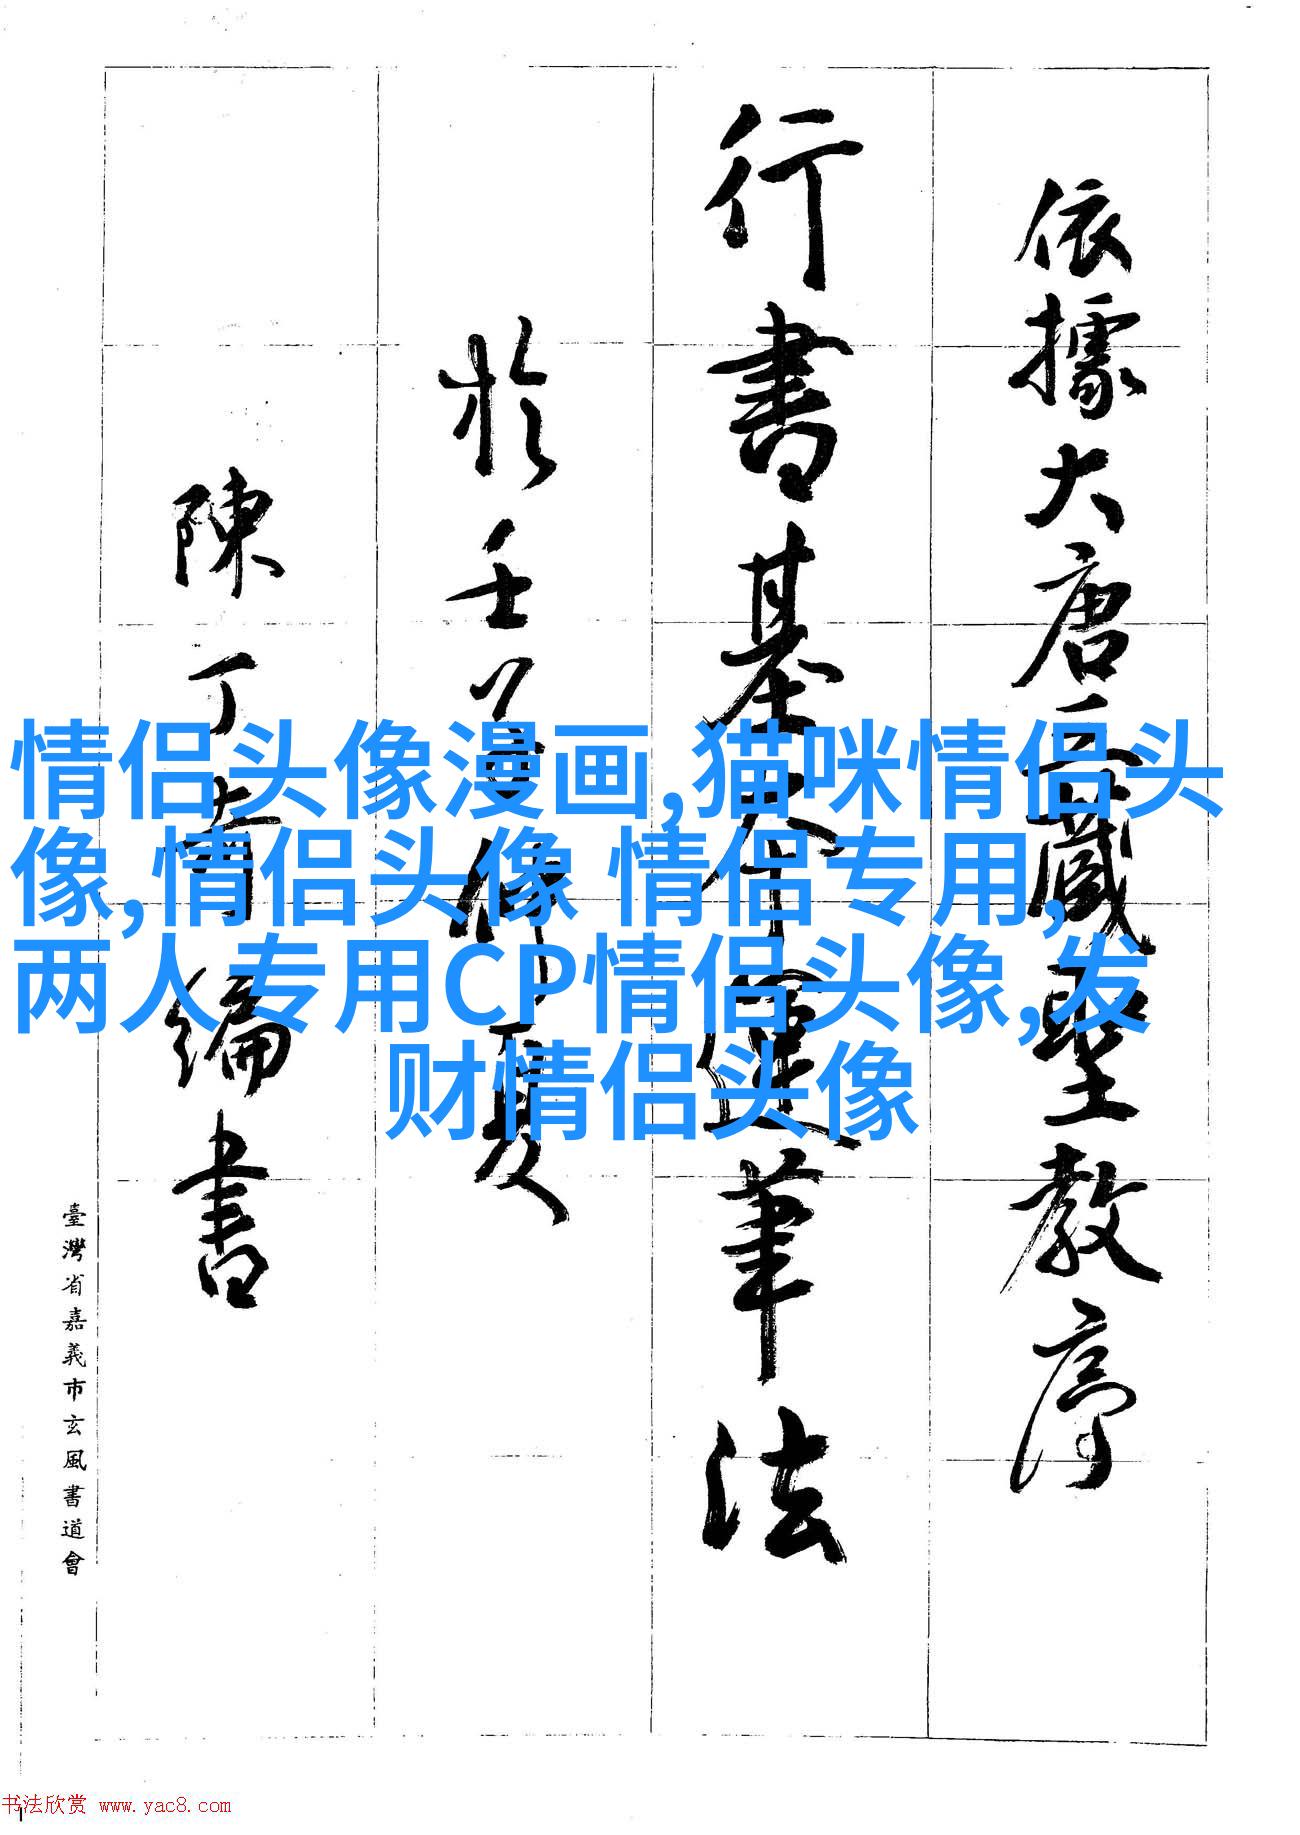 依據大唐三藏聖教序
行書基本運筆法
於壬仲夏
陳丁奇編書
臺灣省嘉義市玄風書道會
情侣头像漫画,猫咪情侣头
像,情侣头像 情侣专用,
两人专用CP情侣头像,发
财情侣头像
书法欣赏 www.yac8.com
1